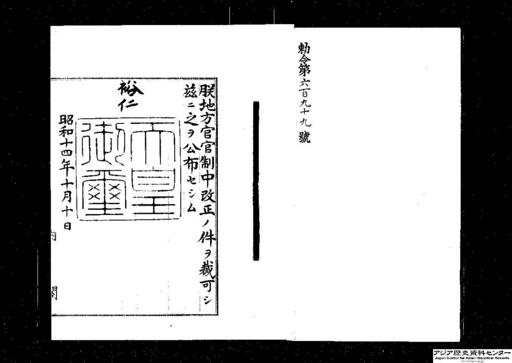 勅令第六百九十九號
朕地方官官制中改正ノ件ヲ裁可シ
茲ニ之ヲ公布セシム
裕仁
天皇
御璽
昭和十四年十月十日
内閣
アジア歴史資料センター
Japan Center for Asian Historical Records